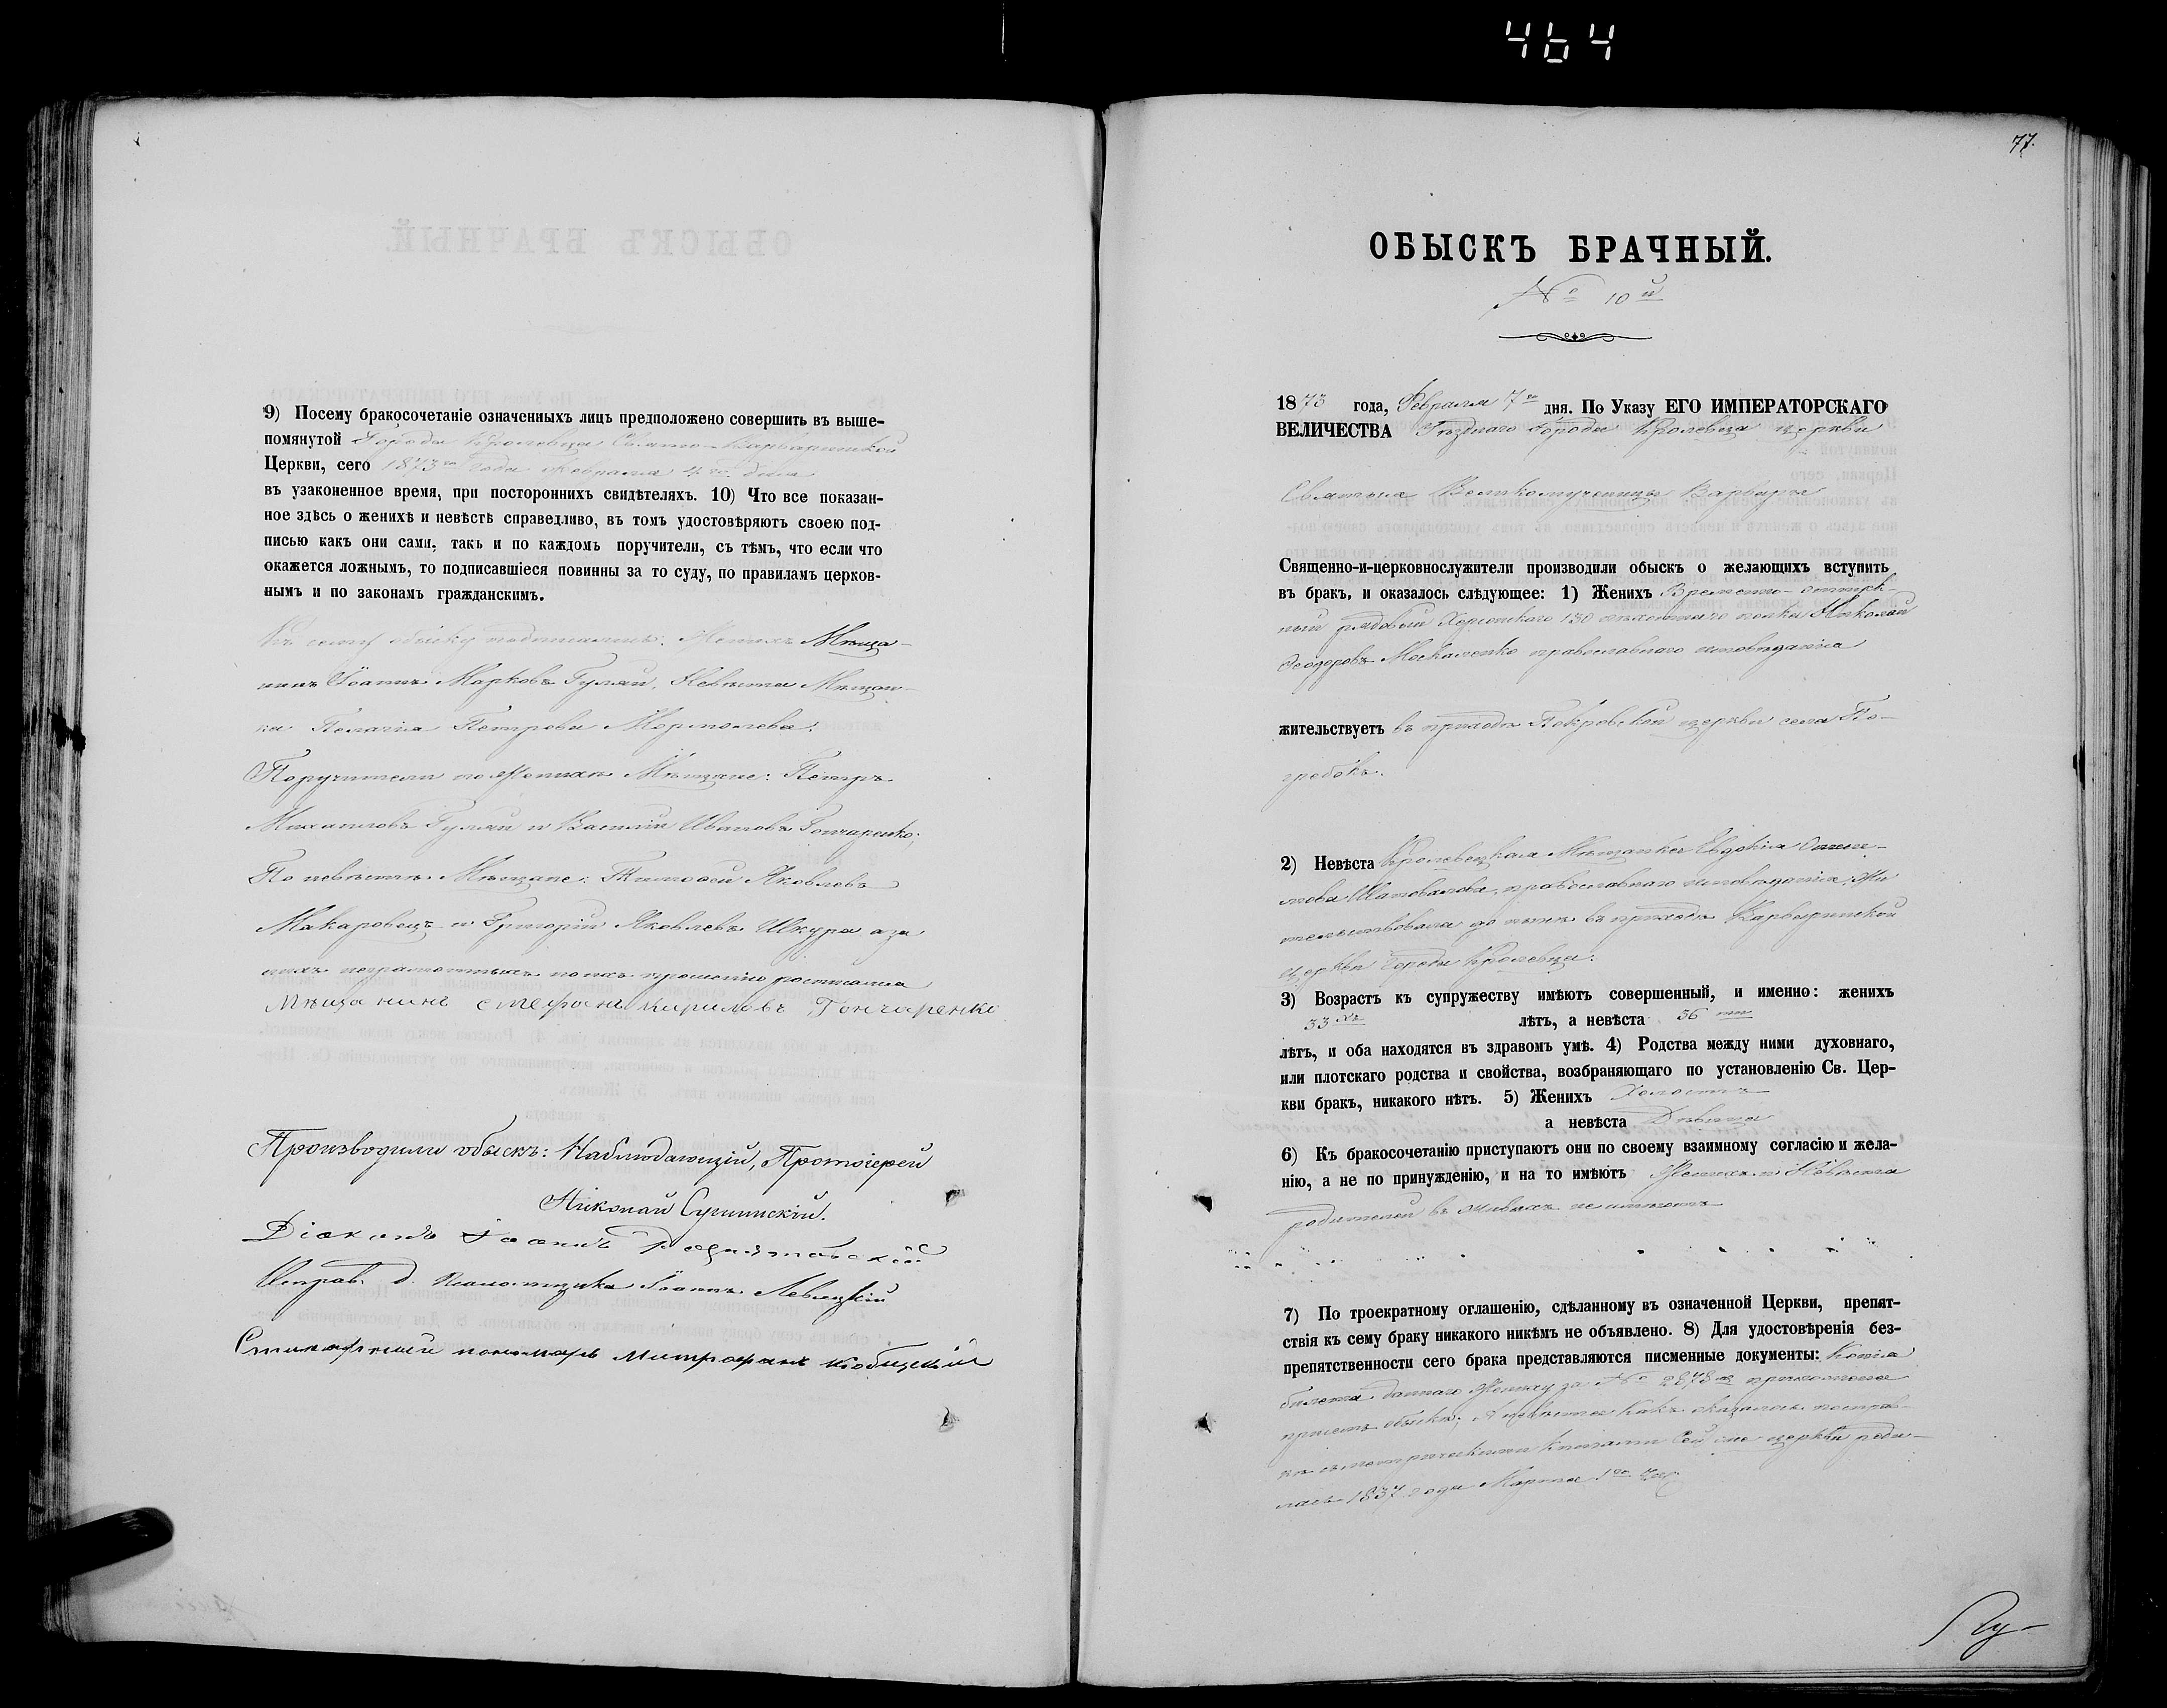 464
9) Посему бракосочетаніе означенныхъ лицъ предположено совершить въ выше-
помянутой Города Кролевца Свято-Варваринской
Церкви, сего 1873го года Февраля 4го дня
въ узаконенное время, при постороннихъ свидѣтеляхъ. 10) Что все показан-
ное здѣсь о женихѣ и невѣстѣ справедливо, въ томъ удостовѣряютъ своею под-
писью какъ они сами, такъ и по каждомъ поручители, съ тѣмъ, что если что
окажется ложнымъ, то подписавшіеся повинны за то суду, по правиламъ церков-
нымъ и по законамъ гражданскимъ.
Къ сему обыску подписались: Женихъ Мѣща-
нинъ Іоаннъ Марковъ Гуляй, Невѣста Мѣщан-
ка Пелагія Петрова
Поручители по Женихѣ Мѣщане: Петръ
Михаиловъ Гуляй и Василій Ивановъ Гончаренко;
По невѣстѣ Мѣщане: Тимофей Яковлевъ
Макаровецъ и Григорій Яковлевъ Шкура а за
нихъ неграмотныхъ по ихъ прошенію росписался
Мѣщанинъ Стефанъ Кириловъ Гончаренко
Производили обыскъ: Наблюдающій, Протоіерей
Николай
Діаконъ Іоаннъ
Исправ. д. Псаломщика Іоаннъ Левицкій
пономарь Митрофанъ
77.
ОБЫСКЪ БРАЧНЫЙ.
№ 10й
1873 года, Февраля 7го дня. По Указу ЕГО ИМПЕРАТОРСКАГО
ВЕЛИЧЕСТВА Уѣзднаго Города Кролевца церкви
Святыя Великомученицы Варвары
Священно-и-церковнослужители производили обыскъ о желающихъ вступить
въ бракъ, и оказалось слѣдующее: 1) Женихъ Временно-отпуск-
ный рядовый Херсонскаго 130 пѣхотнаго полка Николай
Ѳеодоровъ Москаленко православнаго исповѣданія
жительствуетъ въ приходѣ Покровской церкви села По-
гребокъ.
2) Невѣста Кролевецкая Мѣщанка Евдокія
Шаповалова, православнаго исповѣданія, жи-
тельствовала до нынѣ въ приходѣ Варваринской
церкви Города Кролевца.
3) Возрастъ къ супружеству имѣютъ совершенный, и именно: женихъ
33хъ лѣтъ, а невѣста 36ти
лѣтъ, и оба находятся въ здравомъ умѣ. 4) Родства между ними духовнаго,
или плотскаго родства и свойства, возбраняющаго по установленію Св. Цер-
кви бракъ, никакого нѣтъ. 5) Женихъ Холостъ
а невѣста Дѣвица
6) Къ бракосочетанію приступаютъ они по своему взаимному согласію и жела-
нію, а не по принужденію, и на то имѣютъ Женихъ и Невѣста
родителей въ живыхъ не имѣютъ
7) По троекратному оглашенію, сдѣланному въ означенной Церкви, препят-
ствія къ сему браку никакого никѣмъ не объявлено. 8) Для удостовѣренія без-
препятственности сего брака представляются писменные документы: Копія
билета даннаго Жениху за № приложена
при семъ обыскѣ; А невѣста какъ оказалось по справ-
кѣ съ метрическими книгами сей же церкви роди-
лась 1837 года Марта 1го